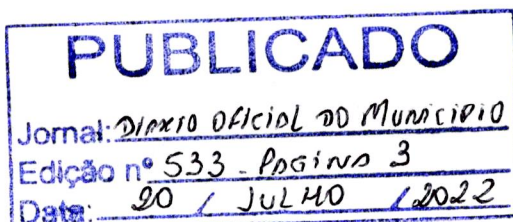 PUBLICADO
Jornal: Diario Oficial do Municipio
Edição nº 533 - Pagina 3
Data: 20 / JULHO / 2022